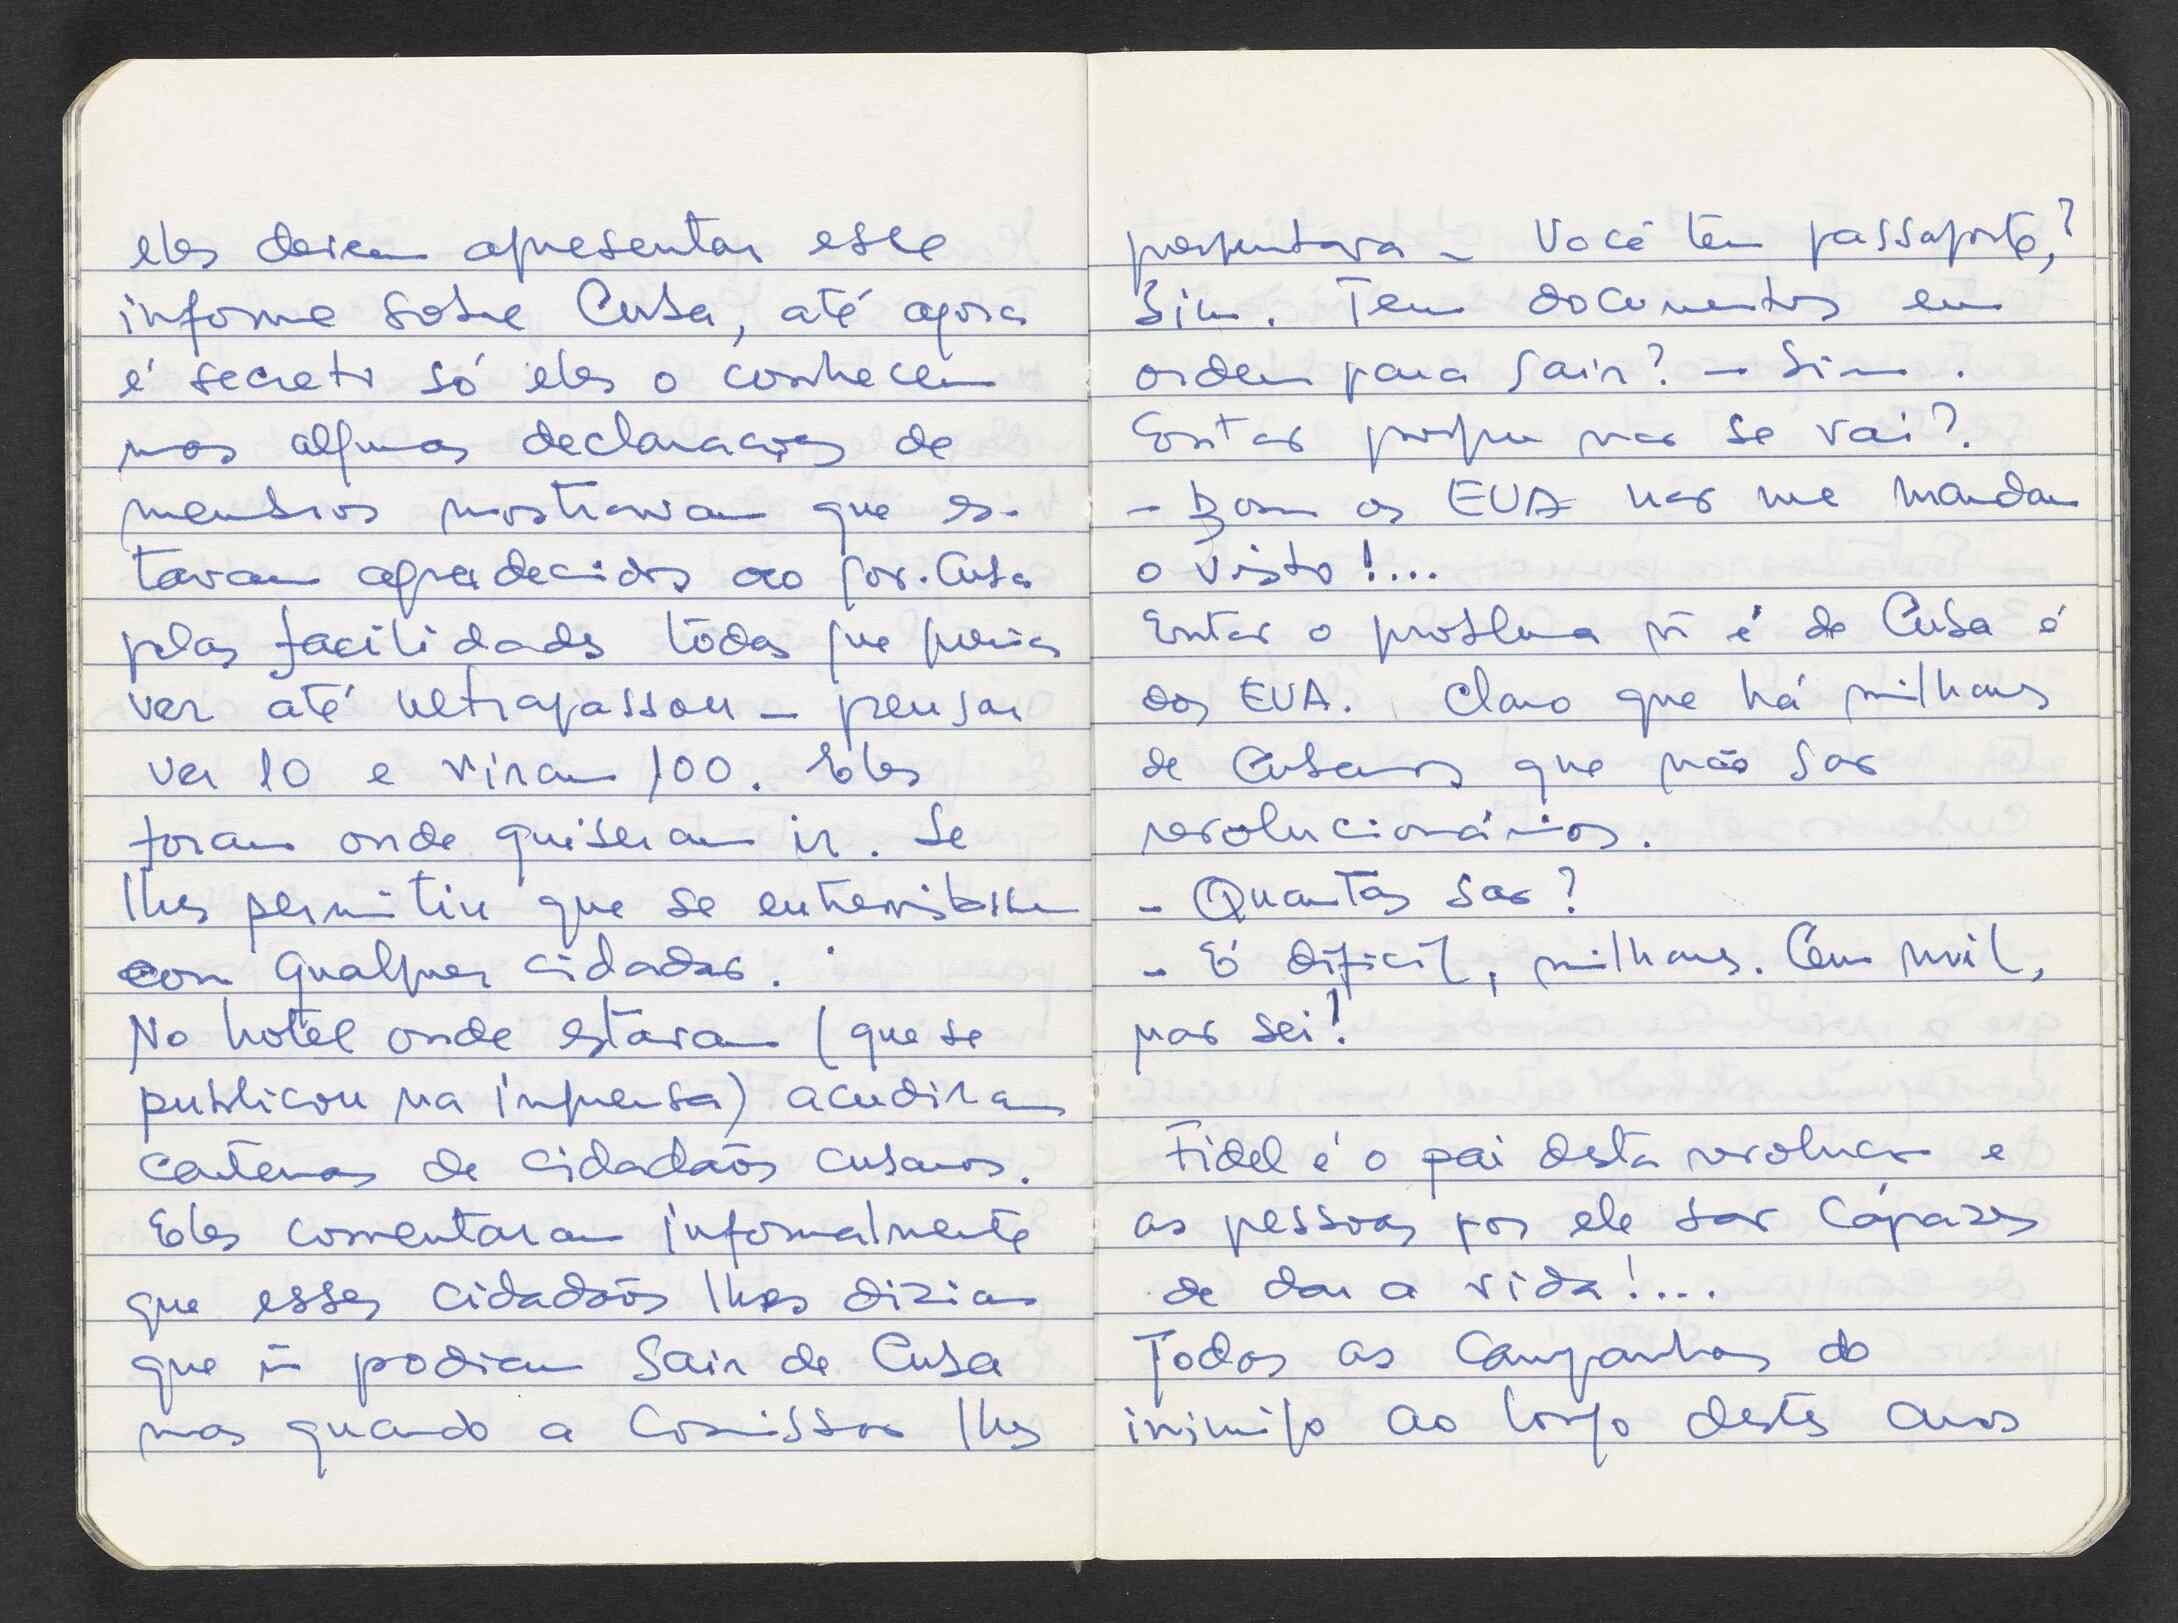 eles devem apresentar esse
informe sobre Cuba, até agora
é secreto só eles o conhecem
mas algumas declarações de
membros mostravam que es-
tavam agradecidos ao gov. Cuba
pelas facilidades tôdas que queria
ver até ultrapassou – pensar
ver 10 e viram 100. Eles
foram onde quiseram ir. Se
lhes permitiu que se entrevistassem
com qualquer cidadão.
No hotel onde estavam (que se
publicou na imprensa) acudiram
centenas de cidadãos cubanos.
Eles comentaram informalmente
que esses cidadãos lhes diziam
que ñ podiam sair de Cuba
mas quando a Comissão lhes
perguntava – Você tem passaporte,?
Sim. Tem documentos em
ordem para sair? – Sim.
Então porque não se vai?.
– Bom os EUA não me mandam
o visto!...
Então o problema ñ é de Cuba é
dos EUA. Claro que há milhares
de Cubanos que não são
revolucionários.
– Quantos são?
– É difícil, milhares. Cem mil,
não sei!
Fidel é o pai desta revolução e
as pessoas por ele são cápazes
de dar a vida!...
Todas as Campanhas do
inimigo ao longo destes anos